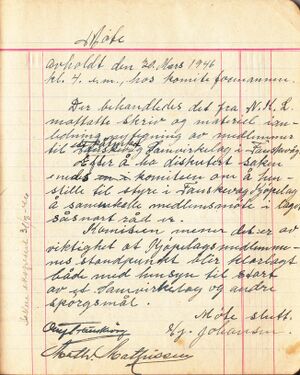 Møte
avholdt den 20. Mars 1946
kl. 4. e.m., hos komite formannen.
Der behandledes det fra N.K.L.
motatte skriv og materiel i an-
ledning av medlemmer
til Samvirkelag i Fauskevåg
Efter å ha diskutert saken
enedes komiteen om å hen-
stille til styre i Fauskevåg Kjøpelag
å sammenkalle medlemsmöte i laget
såsnart råd er.
Komiteen mener det er av
viktighet at Kjøpelagsmedlemme-
nes standpunkt blir klarlagt
både med hensyn til start
av et Samvirkelag og andre
spørgsmål.
Møte slutt.
Johansen
Mathissen